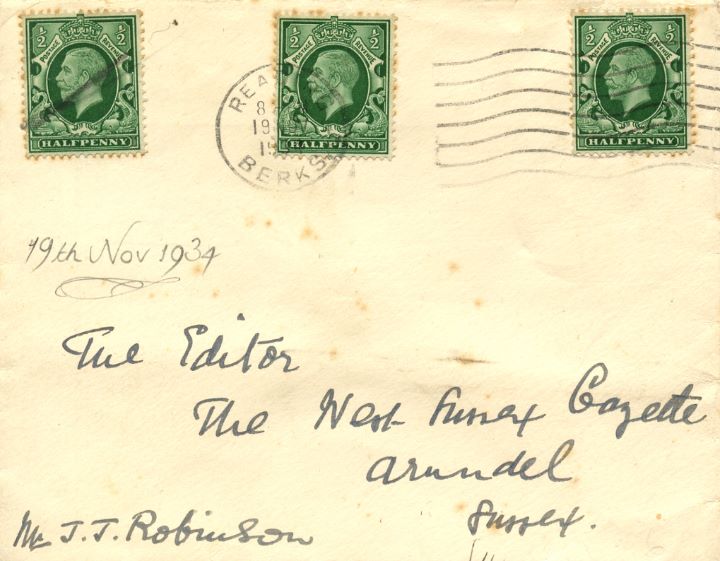 ½ ½
POSTAGE REVENUE
HALFPENNY
½ ½
HALFPENNY
½ ½
POSTAGE REVENUE
HALFPENNY
BERKS
19th Nov 1934
The Editor
The West Sussex Gazette
Arundel
Sussex.
Mr J. J. Robinson